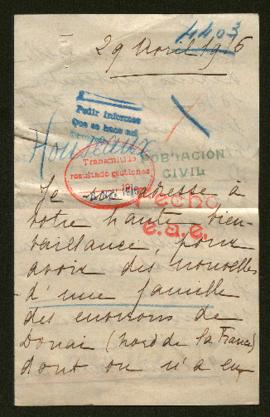 4403
29 Avril 1916
Pedir informes
Que se hace así
Houseaux
Transmitido
resultado gestiones
POBLACIÓN
CIVIL
Je m'adresse à
echo
votre haute bien-
e.a.e.
vaillance, pour
avoir des nouvelles
d'une famille
des environs de
Douai (nord de la France)
dont on n'a eu